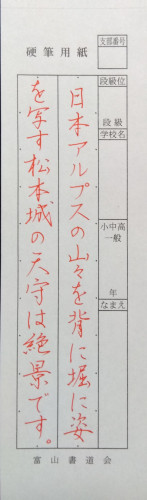 硬筆用紙
支部番号
段級位
段級
学校名
小中高
一般
年
なまえ
日本アルプスの山々を背に堀に姿
を写す松本城の天守は絶景です。
富山書道会